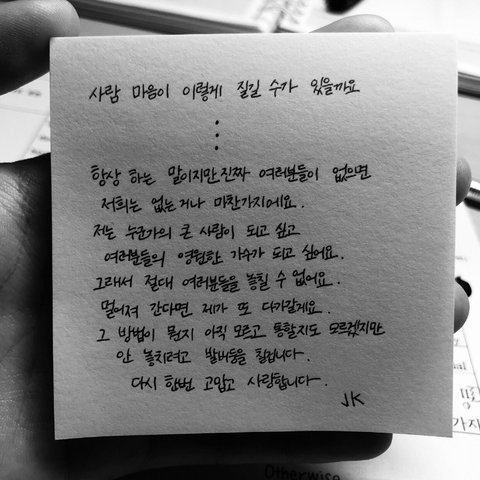 사람 마음이 이렇게 질길 수가 있을까요
항상 하는 말이지만 진짜 여러분들이 없으면
저희는 없는거나 마찬가지에요.
저는 누군가의 큰 사람이 되고 싶고
여러분들의 영원한 가수가 되고 싶어요.
그래서 절대 여러분들을 놓칠 수 없어요.
멀어져 간다면 제가 또 다가갈게요.
그 방법이 뭔지 아직 모르고 통할지도 모르겠지만
안 놓치려고 발버둥을 칠겁니다.
다시 한번 고맙고 사랑합니다.
JK
Otherwise